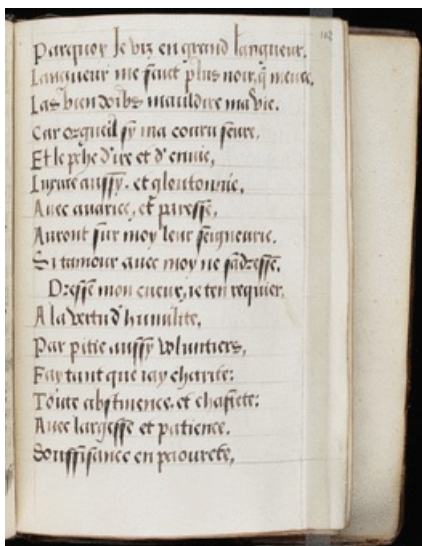 102
Parquoy Je viz en grand langueur.
Langueur me faict plus noir, q̃ meure.
Las bien doibs mauldire ma vie.
Car orgueil sy ma couru seure.
Et le pche d'ire et d'envie,
Luxure aussy. et gloutonnie,
Avec avarice, et paresse,
Auront sur moy leur seigneurie.
Si tamour avec moy ne sadresse.
Dresse mon cueur, ie ten requier,
A la vertu d'humilite,
Par pitie aussy voluntiers,
Fay tant que iay charite:
Toute abstinence, et chastete:
Avec largesse et patience.
Souffisance en paourete,